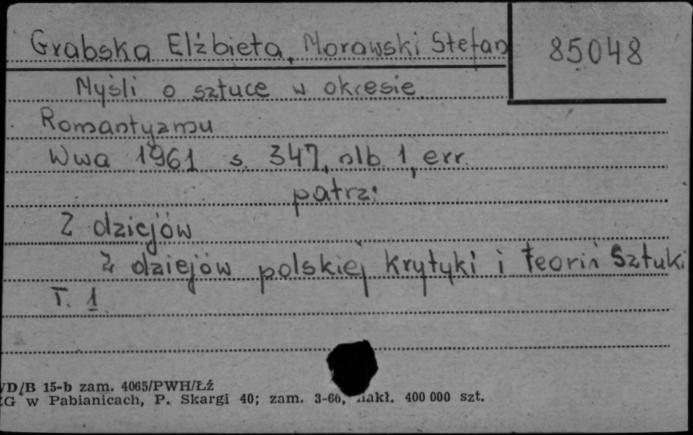 Grabska Elżbieta, Morawski Stefan
85048
Myśli o sztuce w okresie
Romantyzmu
Wwa 1961 s. 347, nlb 1, err.
patrz:
Z dziejów
Z dziejów polskiej krytyki i teorii Sztuki
T. 1
D/B 15-b zam. 4065/PWH/Łź
G w Pabianicach, P. Skargi 40; zam. 3-60, nakł. 400 000 szt.